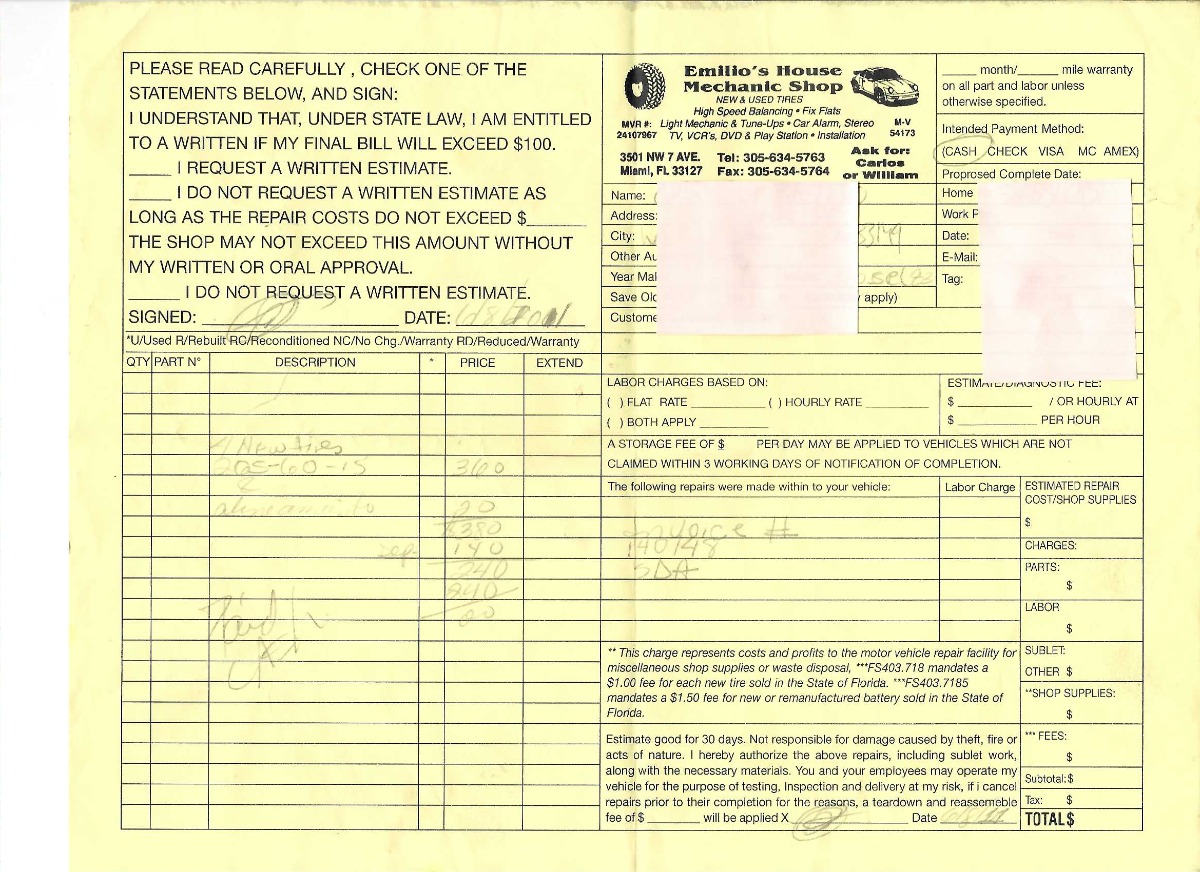 PLEASE READ CAREFULLY , CHECK ONE OF THE
STATEMENTS BELOW, AND SIGN:
I UNDERSTAND THAT, UNDER STATE LAW, I AM ENTITLED
TO A WRITTEN IF MY FINAL BILL WILL EXCEED $100.
____ I REQUEST A WRITTEN ESTIMATE.
____ I DO NOT REQUEST A WRITTEN ESTIMATE AS
LONG AS THE REPAIR COSTS DO NOT EXCEED $______
THE SHOP MAY NOT EXCEED THIS AMOUNT WITHOUT
MY WRITTEN OR ORAL APPROVAL.
_____ I DO NOT REQUEST A WRITTEN ESTIMATE.
SIGNED: DATE:
*U/Used R/Rebuilt RC/Reconditioned NC/No Chg./Warranty RD/Reduced/Warranty
Emilio's House
Mechanic Shop
NEW & USED TIRES
High Speed Balancing • Fix Flats
MVR #: Light Mechanic & Tune-Ups • Car Alarm, Stereo M-V
24107967 TV, VCR's, DVD & Play Station • Installation 54173
3501 NW 7 AVE. Tel: 305-634-5763 Ask for:
Miami, FL 33127 Fax: 305-634-5764 Carlos
or William
_____ month/_____ mile warranty
on all part and labor unless
otherwise specified.
Intended Payment Method:
(CASH CHECK VISA MC AMEX)
Proprosed Complete Date:
Name:
Address:
City: 33149
Other Au
Year Mak
Save Old y apply)
Custome
Home
Work P
Date:
E-Mail:
Tag:
QTY PART N° DESCRIPTION * PRICE EXTEND
4 New tires
205-60-15 360
&
alineamiento 20
$380
dep. 140
240
240
00
Paid
LABOR CHARGES BASED ON:
( ) FLAT RATE ________ ( ) HOURLY RATE _______
( ) BOTH APPLY ________
ESTIMATE/DIAGNOSTIC FEE:
$ ________ / OR HOURLY AT
$ ________ PER HOUR
A STORAGE FEE OF $ PER DAY MAY BE APPLIED TO VEHICLES WHICH ARE NOT
CLAIMED WITHIN 3 WORKING DAYS OF NOTIFICATION OF COMPLETION.
The following repairs were made within to your vehicle: Labor Charge
Invoice #
140148
SDA
ESTIMATED REPAIR
COST/SHOP SUPPLIES
$
CHARGES:
PARTS:
$
LABOR
$
SUBLET:
OTHER $
**SHOP SUPPLIES:
$
*** FEES:
$
Subtotal:$
Tax: $
TOTAL$
** This charge represents costs and profits to the motor vehicle repair facility for
miscellaneous shop supplies or waste disposal, ***FS403.718 mandates a
$1.00 fee for each new tire sold in the State of Florida. ***FS403.7185
mandates a $1.50 fee for new or remanufactured battery sold in the State of
Florida.
Estimate good for 30 days. Not responsible for damage caused by theft, fire or
acts of nature. I hereby authorize the above repairs, including sublet work,
along with the necessary materials. You and your employees may operate my
vehicle for the purpose of testing, Inspection and delivery at my risk, if i cancel
repairs prior to their completion for the reasons, a teardown and reassemeble
fee of $ _______ will be applied X Date 6/8/11